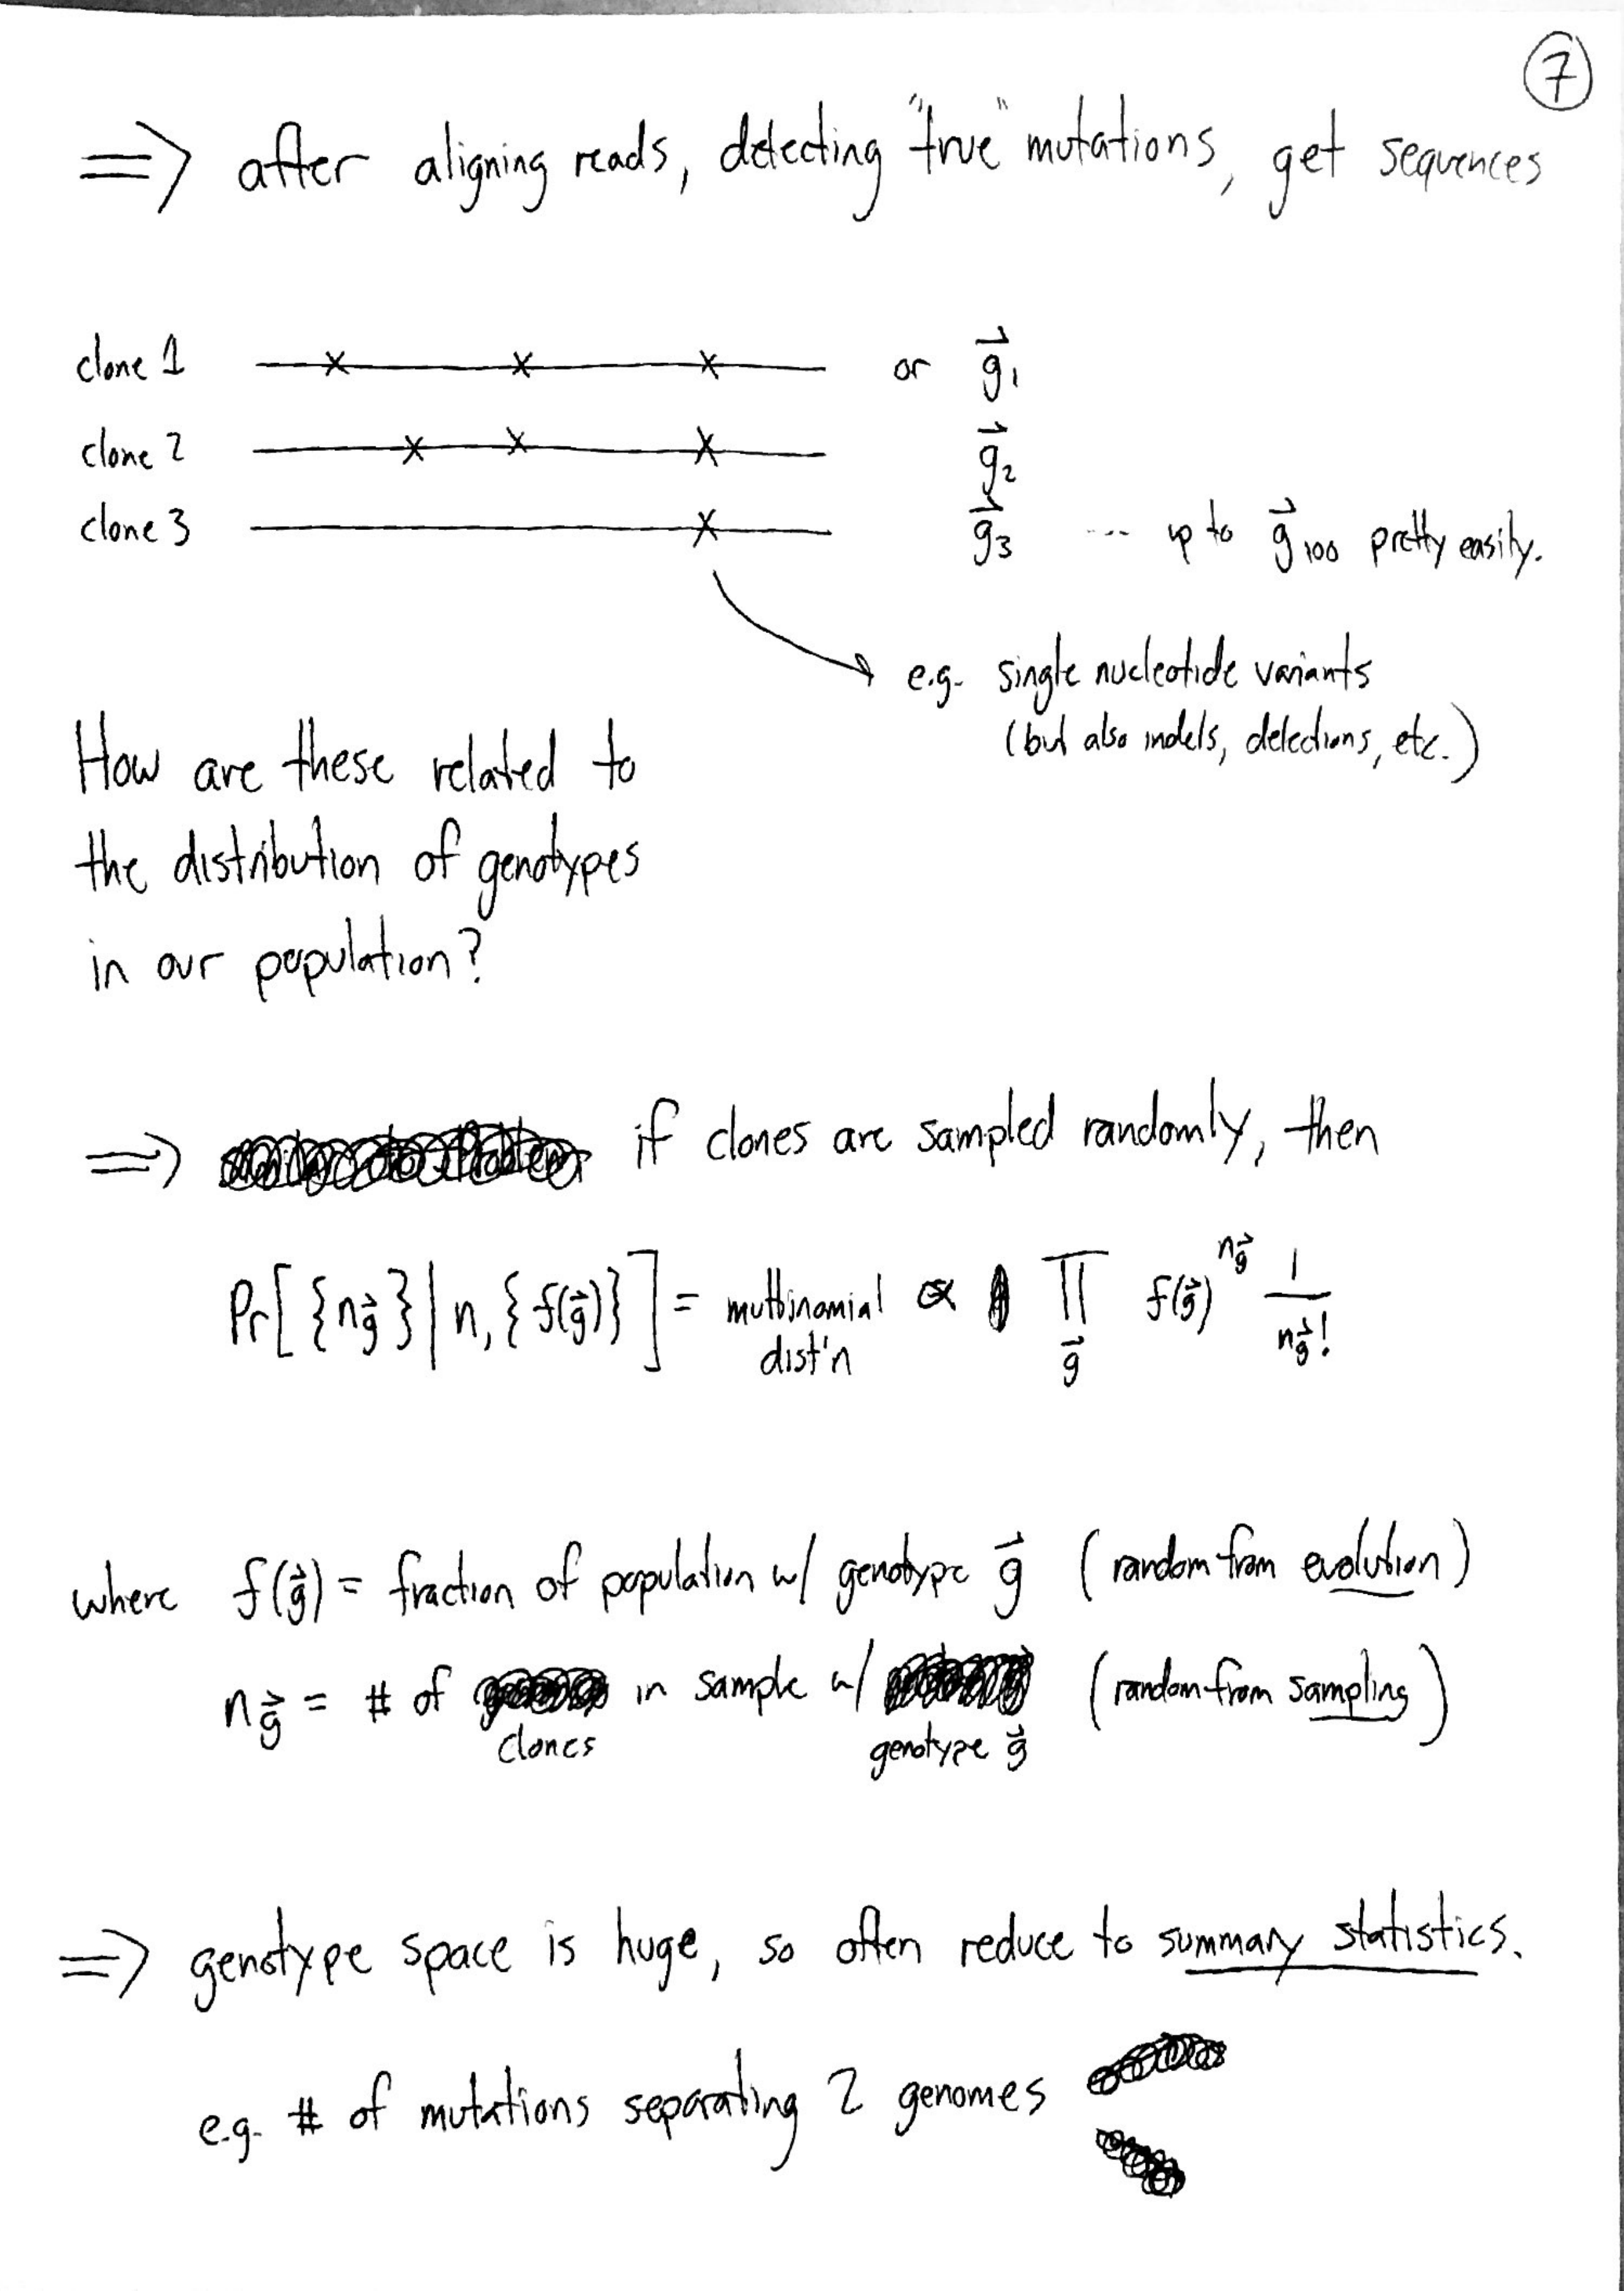 7
⇒ after aligning reads, detecting "true" mutations, get sequences
clone 1 —x—x—x— or g⃗₁
clone 2 —x—x—x— g⃗₂
clone 3 —x— g⃗₃ ... up to g⃗₁₀₀ pretty easily.
e.g. single nucleotide variants
(but also indels, delections, etc.)
How are these related to
the distribution of genotypes
in our population?
⇒ if clones are sampled randomly, then
Pr[{n_g⃗}|n,{f(g⃗)}] = multinomial dist'n ∝ ∏_g⃗ f(g⃗)^{n_g⃗} 1/n_g⃗!
where f(g⃗) = fraction of population w/ genotype g⃗ (random from evolution)
n_g⃗ = # of clones in sample w/ genotype g⃗ (random from sampling)
⇒ genotype space is huge, so often reduce to summary statistics.
e.g. # of mutations separating 2 genomes